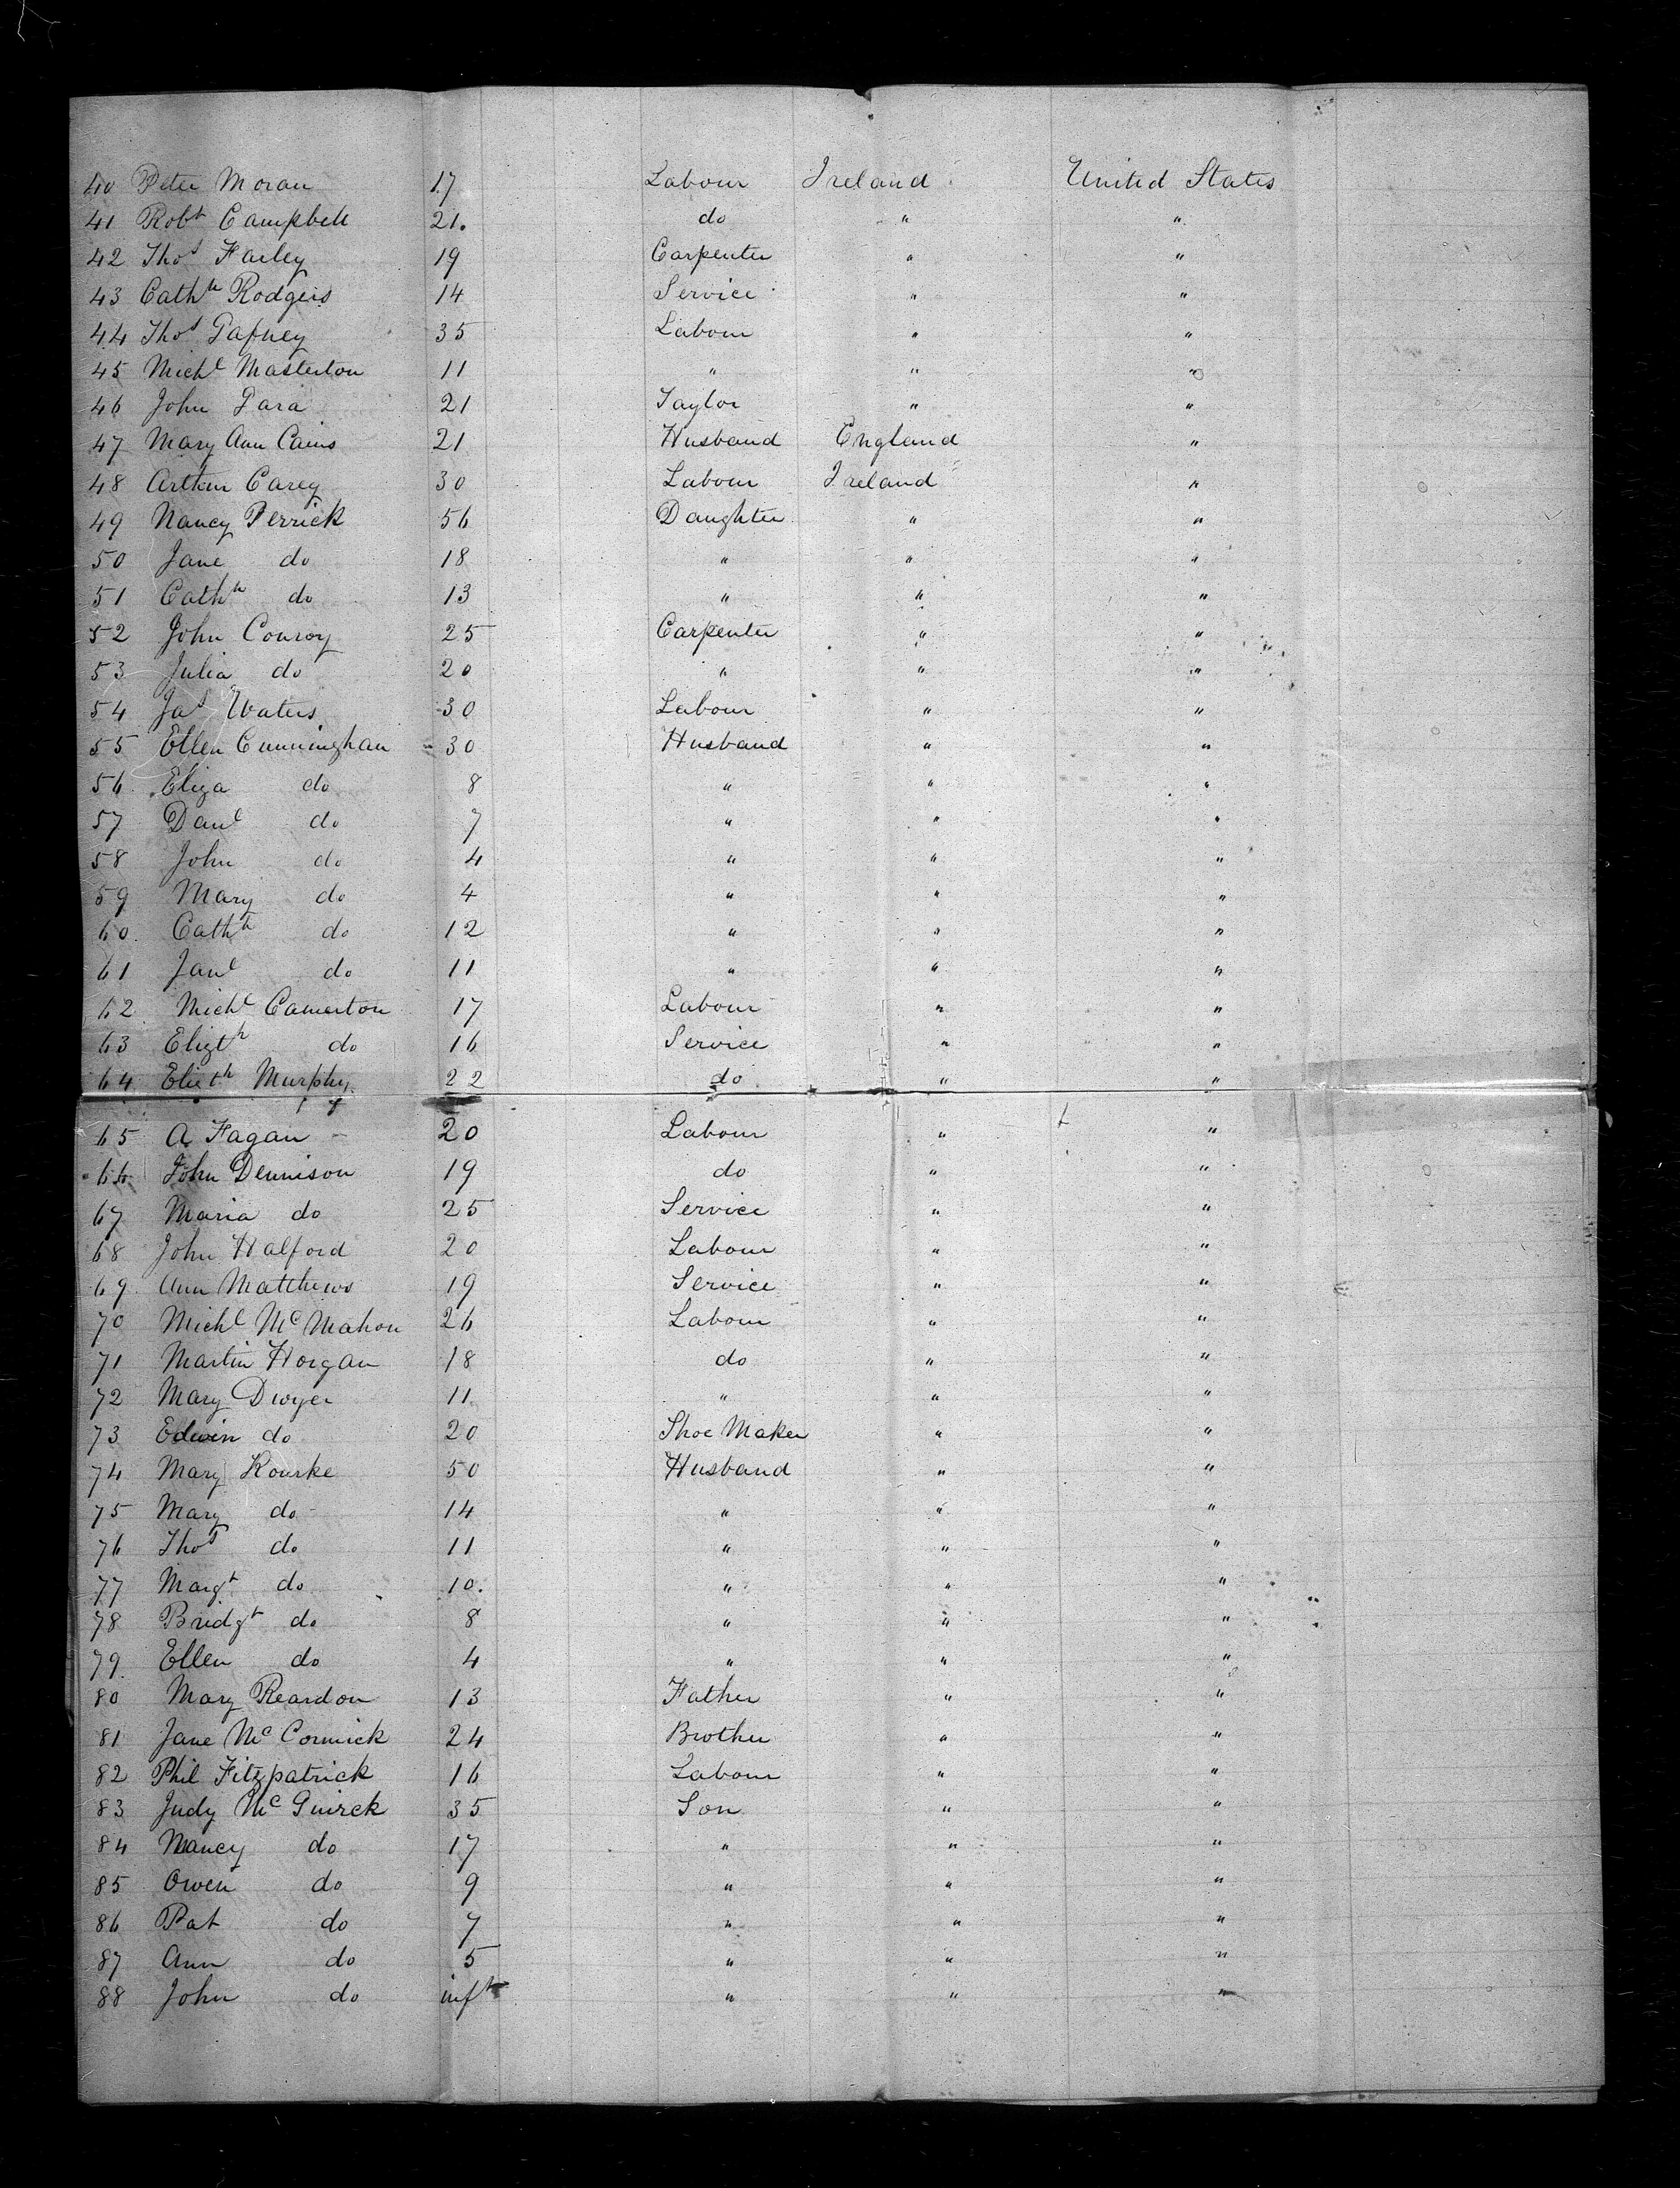 40 Peter Moran 17 Labour Ireland United States
41 Robt Campbell 21. do " "
42 Thos Farley 19 Carpenter " "
43 Cathn Rodgers 14 Service " "
44 Thos Gafney 35 Labour " "
45 Michl Masterton 11 " " "
46 John Gara 21 Taylor " "
47 Mary Ann Cains 21 Husband England "
48 Arthur Carey 30 Labour Ireland "
49 Nancy Perrick 56 Daughter " "
50 Jane do 18 " " "
51 Cathn do 13 " " "
52 John Conroy 25 Carpenter " "
53 Julia do 20 " " "
54 Jas Waters 30 Labour " "
55 Ellen Cunningham 30 Husband " "
56 Eliza do 8 " " "
57 Danl do 7 " " "
58 John do 4 " " "
59 Mary do 4 " " "
60. Cathn do 12 " " "
61 Jane do 11 " " "
62 Michl Camerton 17 Labour " "
63 Elizth do 16 Service " "
64 Elizth Murphy 22 do " "
65 A Fagan 20 Labour " "
66 John Dennison 19 do " "
67 Maria do 25 Service " "
68 John Halford 20 Labour " "
69 Ann Matthews 19 Service " "
70 Michl McMahon 26 Labour " "
71 Martin Horgan 18 do " "
72 Mary Dwyer 11. " " "
73 Edwin do 20 Shoe Maker " "
74 Mary Rourke 50 Husband " "
75 Mary do 14 " " "
76 Thos do 11 " " "
77 Margt do 10. " " "
78 Bridgt do 8 " " "
79. Ellen do 4 " " "
80 Mary Reardon 13 Father " "
81 Jane McCormick 24 Brother " "
82 Phil Fitzpatrick 16 Labour " "
83 Judy McGuirck 35 Son " "
84 Nancy do 17 " " "
85 Owen do 9 " " "
86 Pat do 7 " " "
87 Ann do 5 " " "
88 John do inft " " "